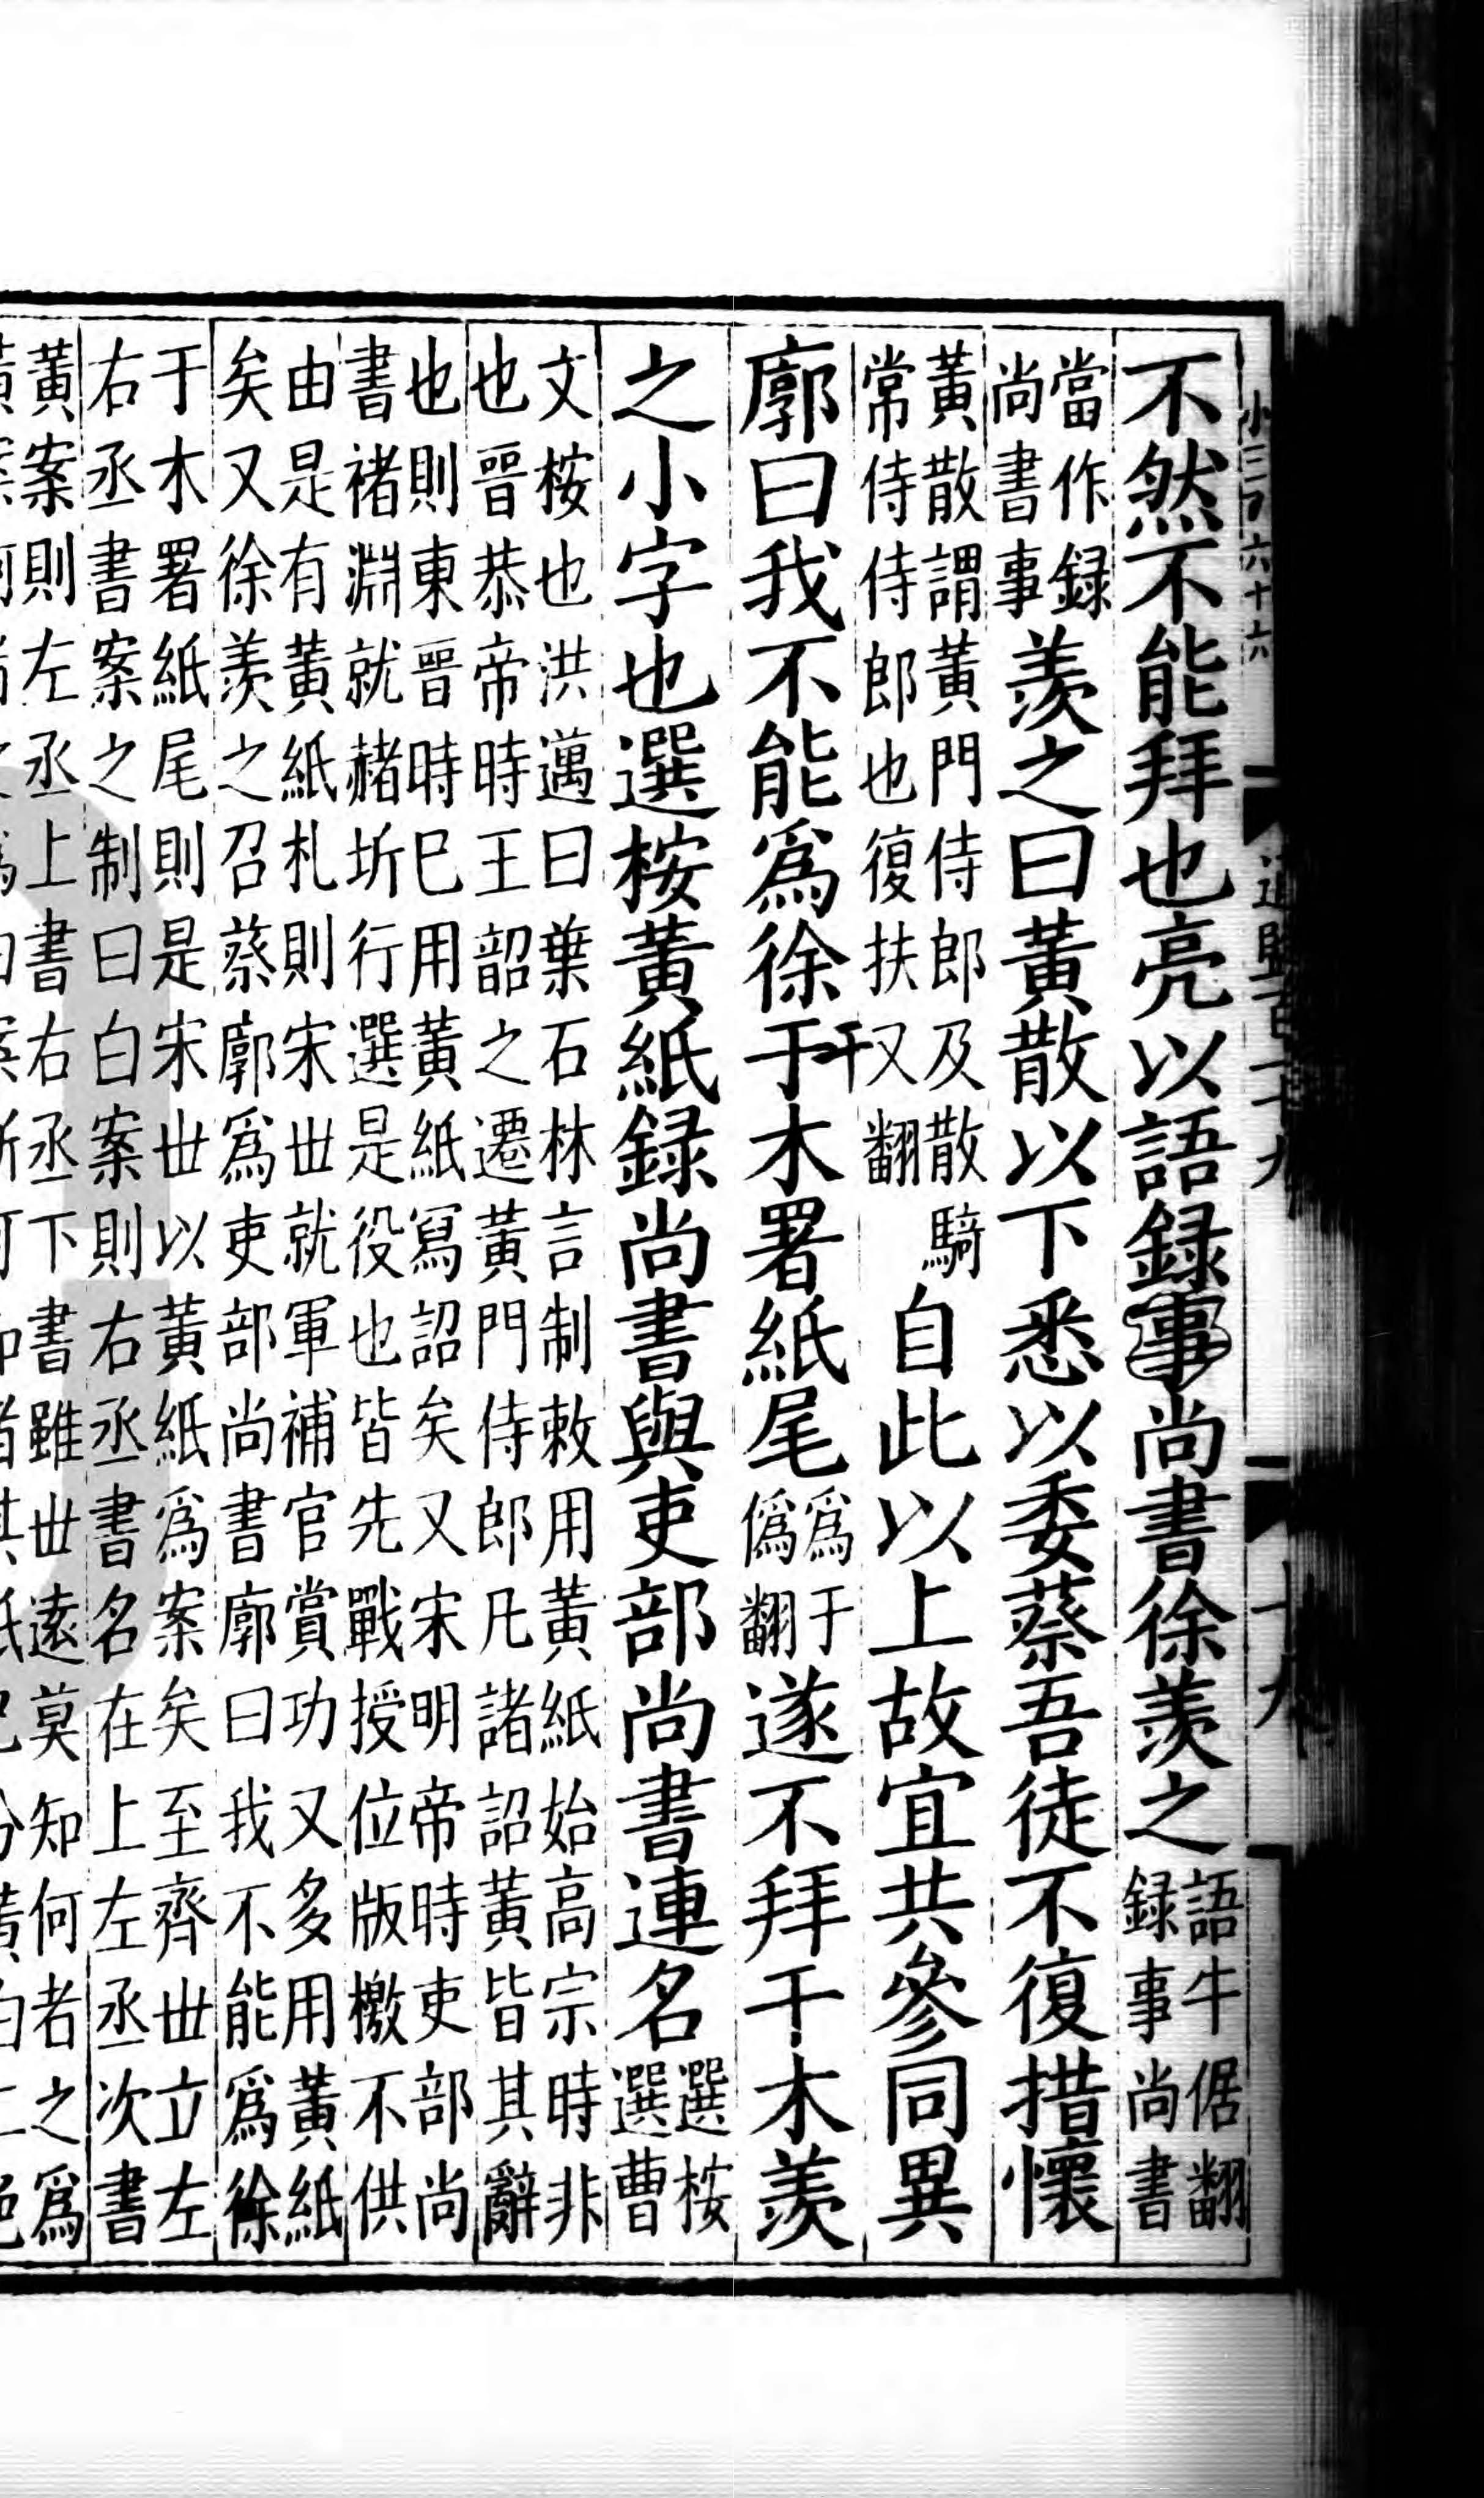 不然不能拜也亮以語録事尚書徐羨之
語牛倨翻
録事尚書
當作録
尚書事
羨之曰黃散以下悉以委蔡吾徒不復措懷
黃散謂黃門侍郎及散騎
常侍侍郎也復扶又翻
自此以上故宜共參同異
廓曰我不能爲徐于木署紙尾
干
爲于
僞翻
遂不拜干木羨
之小字也選桉黃紙録尚書與吏部尚書連名
選桉
選曹
文桉也洪邁曰葉石林言制敕用黃紙始高宗時非
也晉恭帝時王韶之遷黃門侍郎凡諸詔黃皆其辭
也則東晉時巳用黃紙寫詔矣又宋明帝時吏部尚
書褚淵就赭圻行選是役也皆先戰授位版檄不供
由是有黃紙札則宋世就軍補官賞功又多用黃紙
矣又徐羨之召蔡廓爲吏部尚書廓曰我不能爲徐
于木署紙尾則是宋世以黃紙爲案矣至齊世立左
右丞書案之制曰白案則右丞書名在上左丞次書
黃案則左丞上書右丞下書雖世遠莫知何者之爲